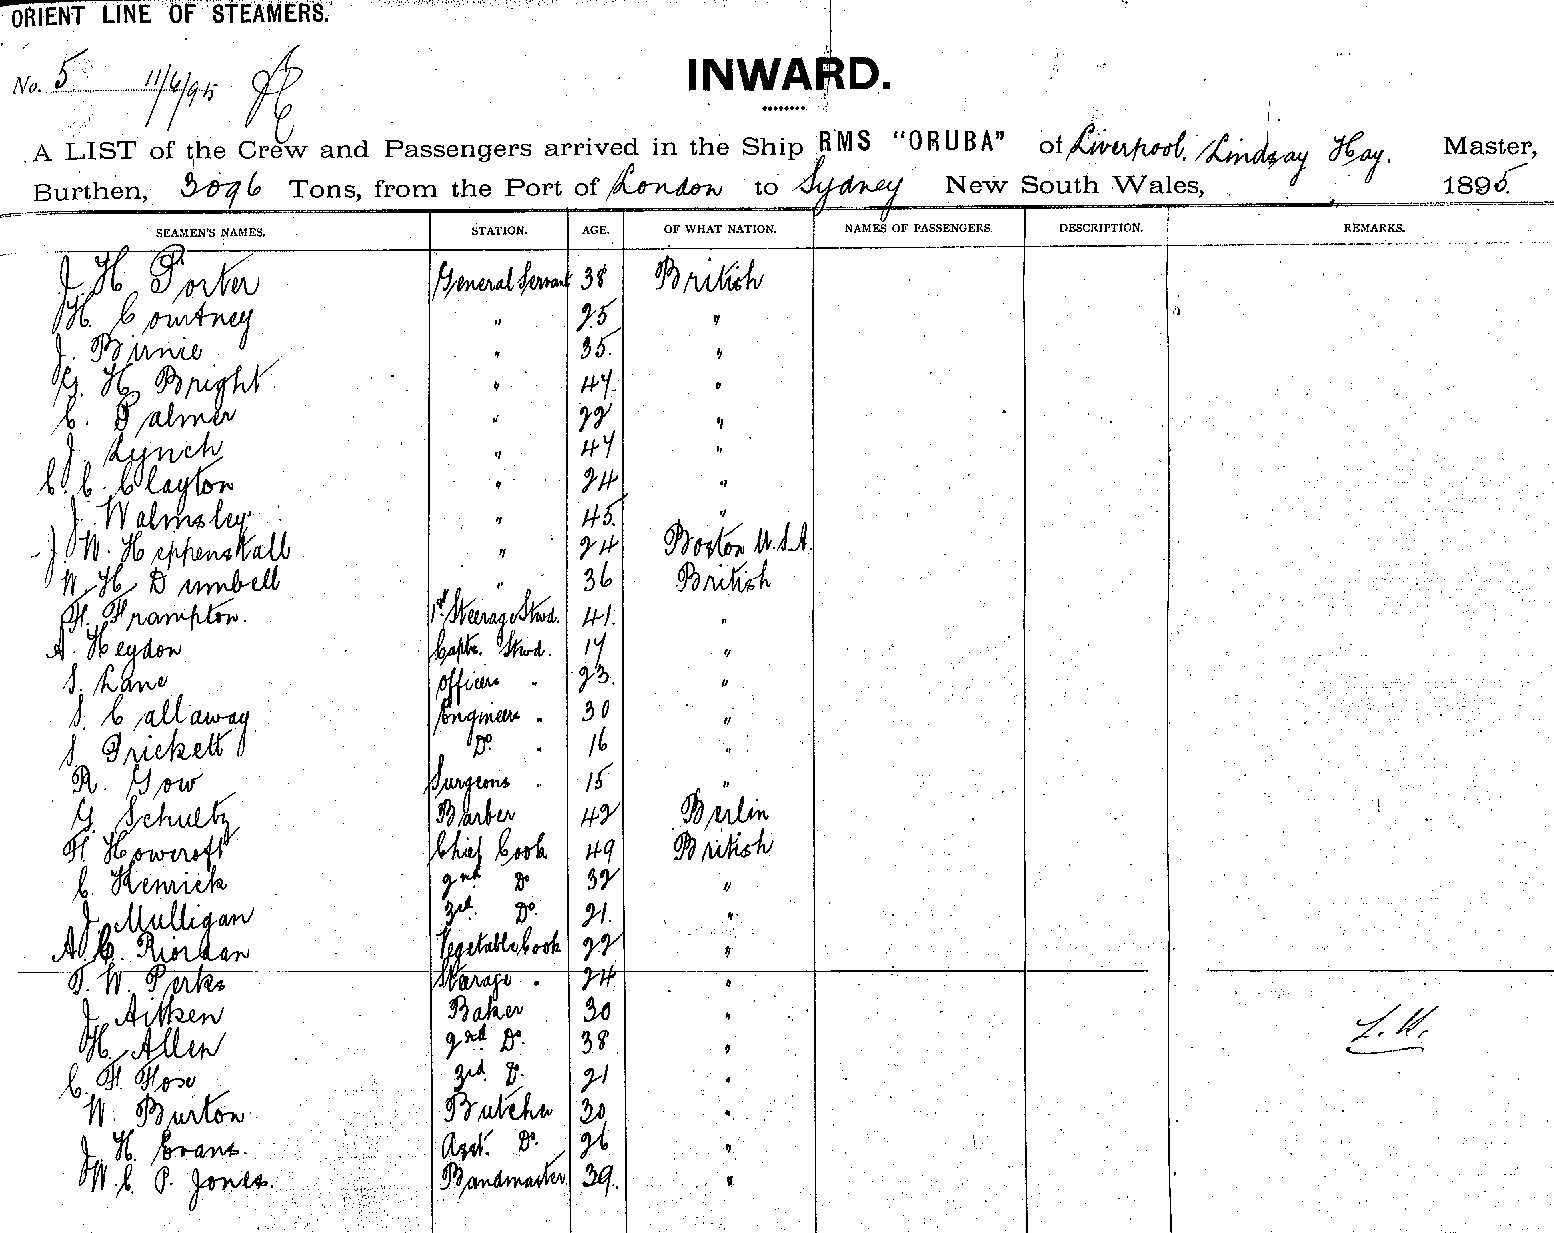 ORIENT LINE OF STEAMERS.
No. 5 11/6/95
INWARD.
A LIST of the Crew and Passengers arrived in the Ship RMS "ORUBA" of Liverpool, Lindsay Hay, Master,
Burthen, 3096 Tons, from the Port of London to Sydney New South Wales, 1895.
SEAMEN'S NAMES. STATION. AGE. OF WHAT NATION. NAMES OF PASSENGERS. DESCRIPTION. REMARKS.
J H Porter General Servant 38 British
H. Courtney " 25 "
J. Birnie " 35. "
G. H. Bright " 47. "
C. Palmer " 22 "
J. Lynch " 47 "
C. C. Clayton " 24 "
J. Walmsley " 45. "
J W. Heppenstall " 24 Boston U.S.A.
W. H. Dumbell " 36 British
H. Frampton. 1st Steerage Stwd. 41. "
A. Heydon Capts. Stwd. 17 "
S. Lane Officers " 23. "
S. Callaway Engineers " 30 "
S. Prickett Do " 16 "
R. Gow Surgeons " 15 "
G. Schultz Barber 42 Berlin
H. Howcroft Chief Cook 49 British
C. Kenrick 2nd Do 32 "
J. Mulligan 3rd. Do. 21. "
A. C. Riordan Vegetable Cook 22 "
T. W. Perks Starage " 24 "
J Aitken Baker 30 "
H. Allen 2nd Do. 38 " L.H.
C. H. Hose 3rd. D. 21 "
W. Burton Butcher 30 "
J. H. Evans. Asst. Do. 26 "
W. C. P. Jones. Bandmaster 39. "